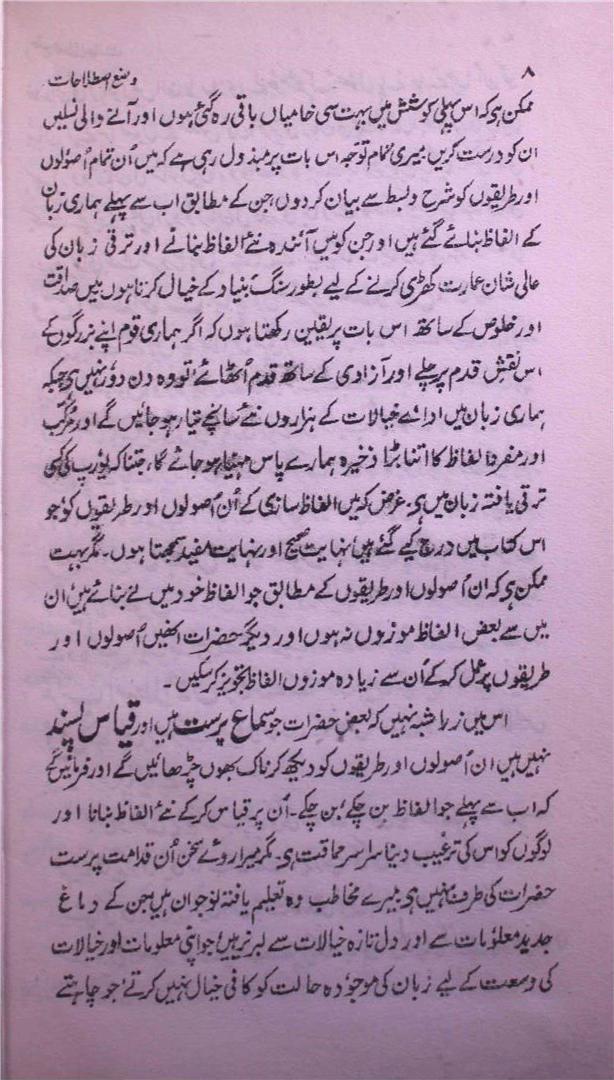 ۸
وضع اصطلاحات
ممکن ہی کہ اس پہلی کوشش میں بہت سی خامیاں باقی رہ گئی ہوں اور آنے والی نسلیں
ان کو درست کریں میری تمام توجہ اس بات پر مبذول رہی ہے کہ میں اُن تمام اُصولوں
اور طریقوں کو شرح و بسط سے بیان کر دوں، جن کے مطابق اب سے پہلے ہماری زبان
کے الفاظ بنائے گئے ہیں اور جن کو میں آئندہ نئے الفاظ بنانے اور ترقی زبان کی
عالی شان عمارت کھڑی کرنے کے لیے بطور سنگِ بنیاد کے خیال کرتا ہوں میں صداقت
اور خلوص کے ساتھ اس بات پر یقین رکھتا ہوں کہ اگر ہماری قوم اپنے بزرگوں کے
اس نقشِ قدم پر چلے اور آزادی کے ساتھ قدم اُٹھائے تو وہ دن دوٗر نہیں ہی جبکہ
ہماری زبان میں ادائے خیالات کے ہزاروں نئے سانچے تیار ہو جائیں گے اور مرکّب
اور مفرد الفاظ کا اتنا بڑا ذخیرہ ہمارے پاس مہیّا ہو جائے گا، جتنا کہ یورپ کی کسی
ترقی یافتہ زبان میں ہی۔ غرض کہ میں الفاظ سازی کے اُن اُصولوں اور طریقوں کو جو
اس کتاب میں درج کیے گئے ہیں نہایت صحیح اور نہایت مفید سمجھتا ہوں۔ مگر بہت
ممکن ہی کہ ان اُصولوں اور طریقوں کے مطابق جو الفاظ خود میں نے بنائے ہیں ان
میں سے بعض الفاظ موزوں نہ ہوں اور دیگر حضرات انھیں اُصولوں اور
طریقوں پر عمل کر کے اُن سے زیادہ موزوں الفاظ تجویز کر سکیں۔
اس میں زرا شبہ نہیں کہ بعض حضرات جو سماع پرست ہیں اور قیاس پسند
نہیں ہیں ان اُصولوں اور طریقوں کو دیکھ کر ناک بھوں چڑھائیں گے اور فرمائیں گے
کہ اب سے پہلے جو الفاظ بن چکے بن چکے۔ اُن پر قیاس کر کے نئے الفاظ بنانا اور
لوگوں کو اس کی ترغیب دینا سراسر حماقت ہی۔ مگر میرا روئے سخن اُن قدامت پرست
حضرات کی طرف نہیں ہی میرے مخاطب وہ تعلیم یافتہ نوجوان ہیں جن کے دماغ
جدید معلومات سے اور دل تازہ خیالات سے لبریز ہیں، جو اپنی معلومات اور خیالات
کی وسعت کے لیے زبان کی موجودہ حالت کو کافی خیال نہیں کرتے، جو چاہتے